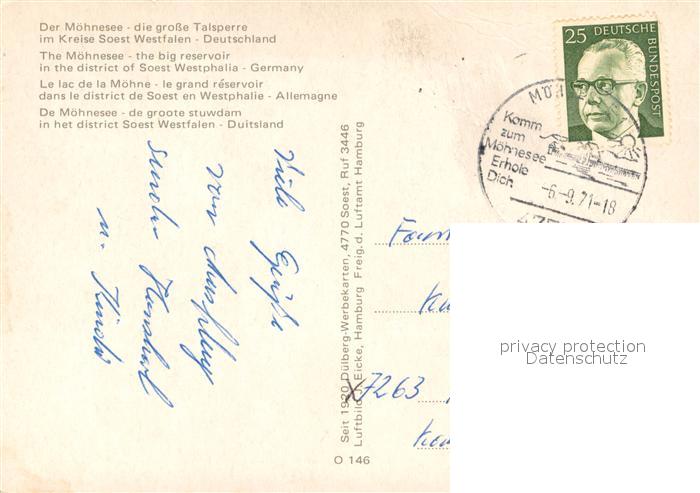 Der Möhnesee - die große Talsperre
im Kreise Soest Westfalen - Deutschland
The Möhnesee - the big reservoir
in the district of Soest Westphalia - Germany
Le lac de la Möhne - le grand réservoir
dans le district de Soest en Westphalie - Allemagne
De Möhnesee - de groote stuwdam
in het district Soest Westfalen - Duitsland
25 DEUTSCHE
BUNDESPOST
MÖH
Komm
zum
Möhnesee
Erhole
Dich
-6.-9.71-18
Viele Grüße
vom Ausflug
senden
u. Kinder
Seit 1920 Dülberg-Werbekarten, 4770 Soest, Ruf 3446
Luftbild S. Eicke, Hamburg Freig. d. Luftamt Hamburg
Fam
7263
O 146
privacy protection
Datenschutz